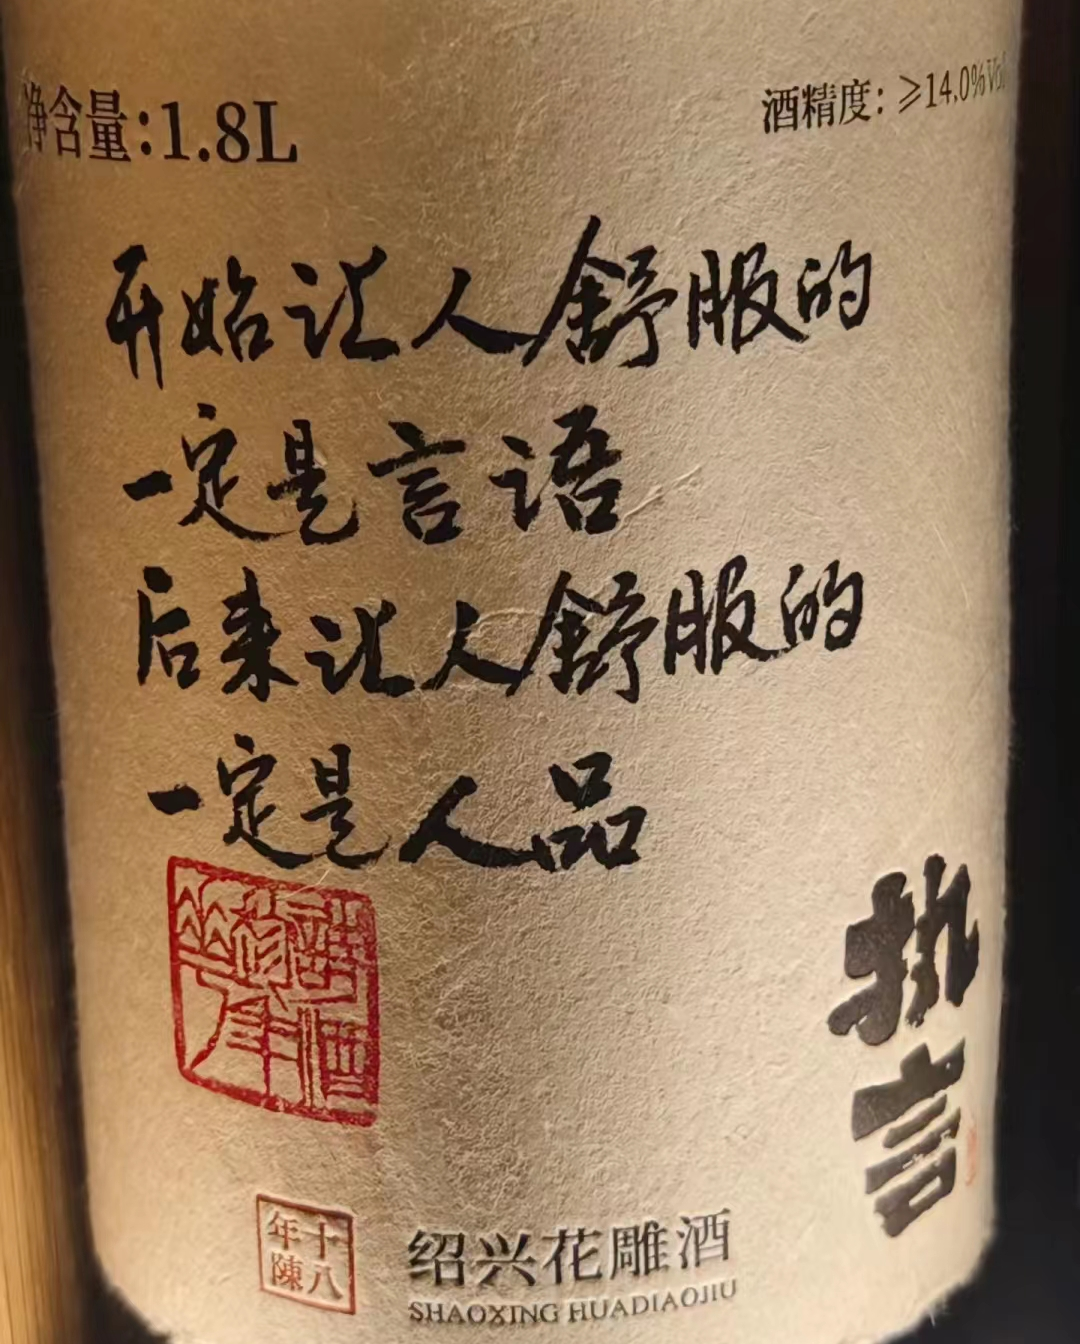 净含量:1.8L
酒精度: ≥14.0%Vol
开始让人舒服的
一定是言语
后来让人舒服的
一定是人品
执言
十八年陳
绍兴花雕酒
SHAOXING HUADIAOJIU